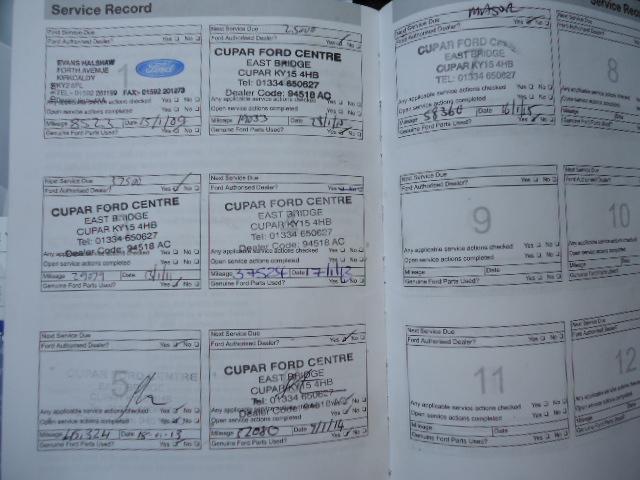 Service Record
Next Service Due
Ford Authorised Dealer? Yes No
EVANS HALSHAW
FORTH AVENUE
KIRKCALDY
KY2 5PL
TEL - 01592 261199 FAX - 01592 201273
Ford
Any applicable service actions checked Yes No
Open service actions completed Yes No
Mileage 8523 Date 15/1/09
Genuine Ford Parts Used? Yes No
Next Service Due 25000
Ford Authorised Dealer? Yes No
CUPAR FORD CENTRE
EAST BRIDGE
CUPAR KY15 4HB
Tel: 01334 650627
Dealer Code: 94518 AC
Open service actions completed Yes No
Mileage Date
Genuine Ford Parts Used? Yes No
Next Service Due 37500
Ford Authorised Dealer? Yes No
CUPAR FORD CENTRE
EAST BRIDGE
CUPAR KY15 4HB
Tel: 01334 650627
Dealer Code: 94518 AC
Open service actions completed Yes No
Mileage Date
Genuine Ford Parts Used? Yes No
Next Service Due
Ford Authorised Dealer? Yes No
CUPAR FORD CENTRE
EAST BRIDGE
CUPAR KY15 4HB
Tel: 01334 650627
Dealer Code: 94518 AC
Open service actions completed Yes No
Mileage 37524 Date 17/1/12
Genuine Ford Parts Used? Yes No
Next Service Due
Ford Authorised Dealer? Yes No
5
Any applicable service actions checked Yes No
Open service actions completed Yes No
Mileage Date
Genuine Ford Parts Used? Yes No
Next Service Due
Ford Authorised Dealer? Yes No
CUPAR FORD CENTRE
EAST BRIDGE
CUPAR KY15 4HB
Tel: 01334 650627
Dealer Code: 94518 AC
Open service actions completed Yes No
Mileage Date 9/1/14
Genuine Ford Parts Used? Yes No
Service Record
MAJOR
Next Service Due
Ford Authorised Dealer? Yes No
CUPAR FORD CENTRE
EAST BRIDGE
CUPAR KY15 4HB
Tel: 01334 650627
Dealer Code: 94518 AC
Any applicable service actions checked Yes No
Open service actions completed Yes No
Mileage 58360 Date 16/1/15
Genuine Ford Parts Used? Yes No
Next Service Due
Ford Authorised Dealer?
8
Any applicable service
Open service actions completed
Mileage
Genuine Ford Parts Used?
Next Service Due
Ford Authorised Dealer? Yes No
9
Any applicable service actions checked Yes No
Open service actions completed Yes No
Mileage Date
Genuine Ford Parts Used? Yes No
Next Service Due
10
Mileage
Genuine Ford Parts Used?
Next Service Due
Ford Authorised Dealer? Yes No
11
Any applicable service actions checked Yes No
Open service actions completed Yes No
Mileage Date
Genuine Ford Parts Used? Yes No
Next Service Due
12
Mileage
Genuine Ford Parts Used?